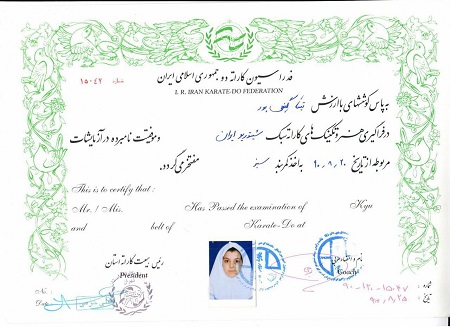 فدراسیون کاراته دو جمهوری اسلامی ایران
شماره ۱۵۰۴۲
I. R. IRAN KARATE-DO FEDERATION
به پاس کوششهای با ارزش
در فراگیری هنر و تکنیک های کاراته سبک شیتوریو ایران و موفقیت نامبرده در آزمایشات
مربوطه از تاریخ ۹۰,۸,۲۰ به اخذ کمربند سبز مفتخر می گردد.
This is to certify that :
Mr. / Mis. Has Passed the examination of Kyu
and belt of Karate-Do at
رئیس هیئت کاراته استان
President
نام و امضاء مربی
Coach
No :
Date
شماره : ۹۰-۱۲۰-۱۵۰۴۷
تاریخ : ۹۰,۸,۲۵